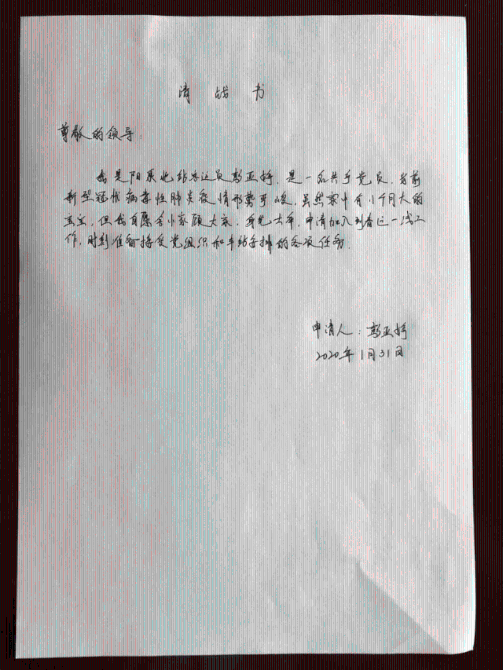 请战书
尊敬的领导:
我是阳泉北站客运员郭亚婷,是一名共产党员,当前
新型冠状病毒性肺炎疫情形势严峻,虽然家中有小个月大的
宝宝,但我自愿舍小家顾大家,身先士卒,申请加入到春运一线工
作,时刻准备接受党组织和车站安排的各项任务.
申请人:郭亚婷
2020年1月31日